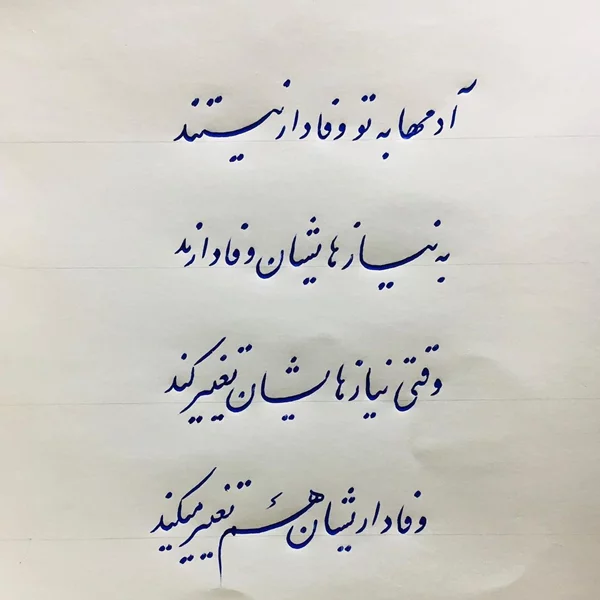 آدمها به تو وفادار نیستند
به نیازهایشان وفادارند
وقتی نیازهایشان تغییر کند
وفاداریشان هم تغییر میکند